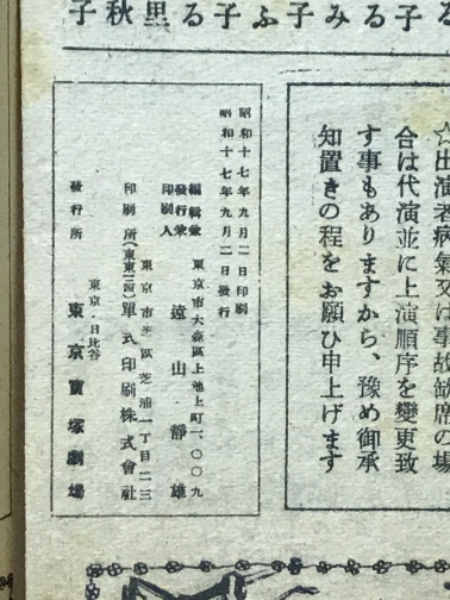 る子るみ子ふ子る里秋子
☆出演者病氣又は事故缺席の場
合は代演並に上演順序を變更致
す事もありますから、豫め御承
知置きの程をお願ひ申上げます
昭和十七年九月二日印刷
昭和十七年九月二日發行
東京市大森區上池上町一、〇〇九
編輯兼
發行兼
印刷人
遠山靜雄
東京市芝區芝浦一丁目二三
印刷所(東東三四)單式印刷株式會社
東京・日比谷
發行所 東京寶塚劇場